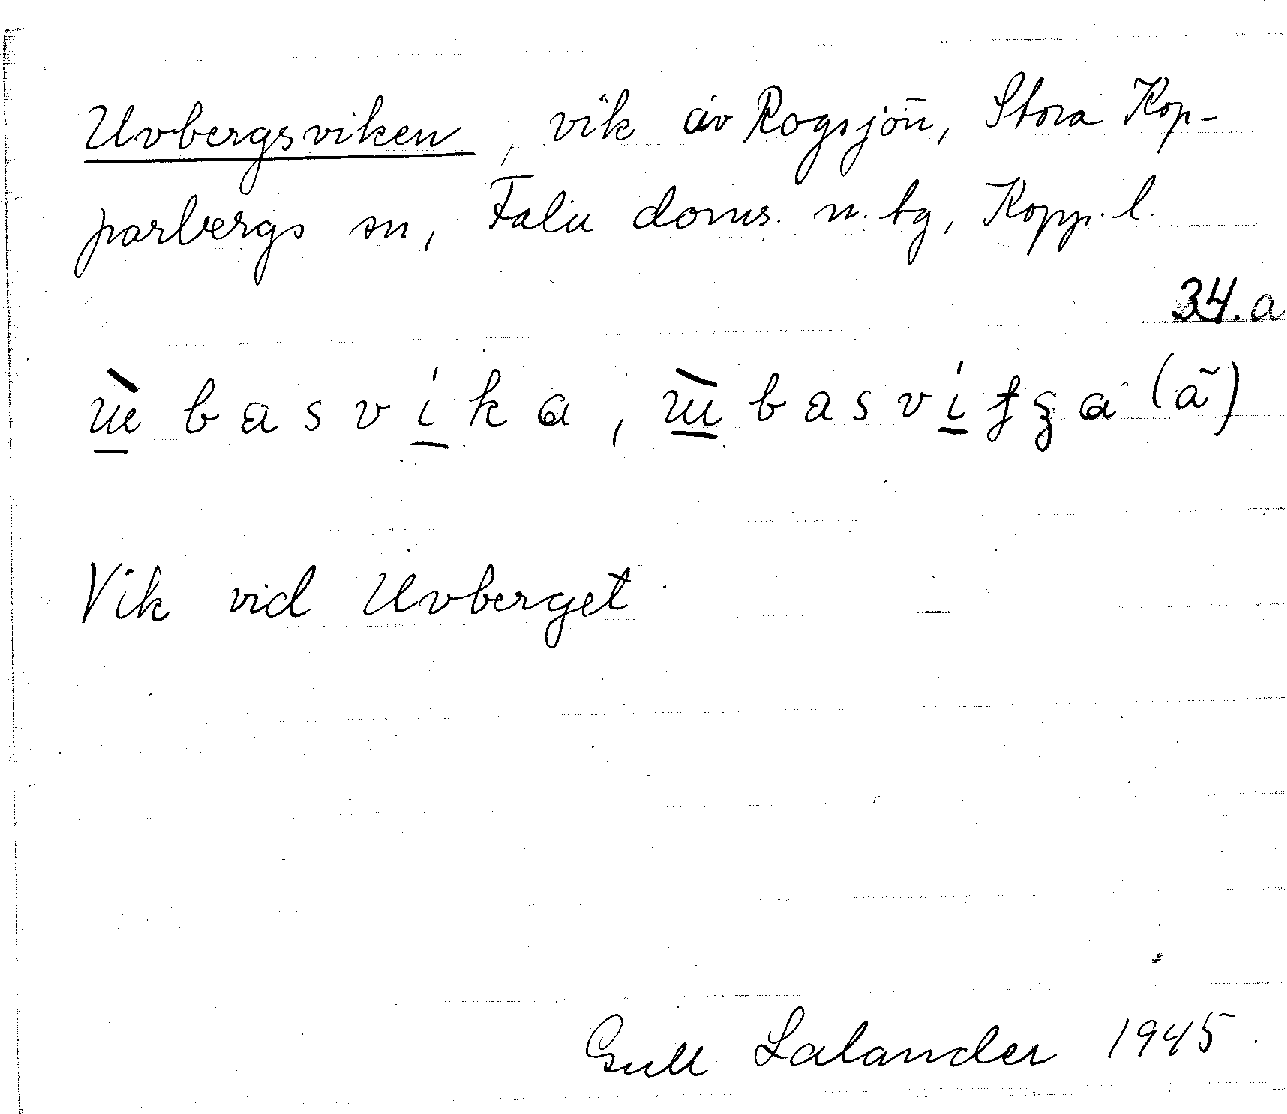 Uvbergsviken, vik av Rogsjön, Stora Kop-
parbergs sn, Falu doms. n. tg, Kopp. l.
34.a
b a s v i k a, b a s v i a (ã)
Vik vid Uvberget
Gull Lalander 1945